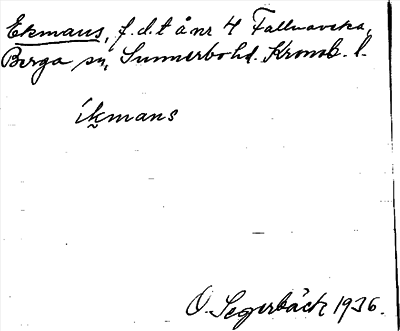 Ekmans, f.d.t å nr 4 Fallnaveka,
Berga sn, Sunnerbo hd. Kronob. l.
ikmans
O. Segerbäck 1936.